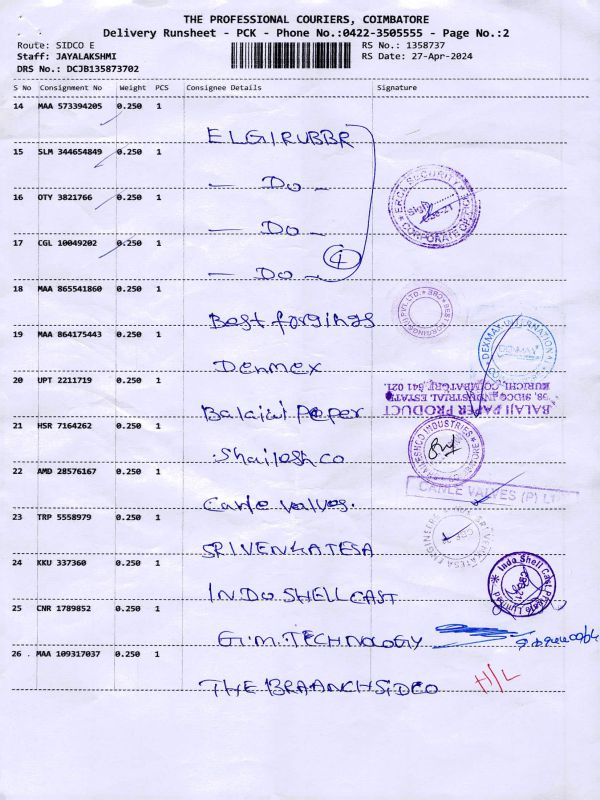 THE PROFESSIONAL COURIERS, COIMBATORE
Delivery Runsheet - PCK - Phone No.:0422-3505555 - Page No.:2
Route: SIDCO E RS No.: 1358737
Staff: JAYALAKSHMI RS Date: 27-Apr-2024
DRS No.: DCJB135873702
S No Consignment No Weight PCS Consignee Details Signature
14 MAA 573394205 0.250 1
ELGI RUBBR
15 SLM 344654849 0.250 1
— Do —
16 OTY 3821766 0.250 1
— Do —
17 CGL 10049202 0.250 1
— Do — 4
18 MAA 865541860 0.250 1
Best forgings
19 MAA 864175443 0.250 1
Denmex
20 UPT 2211719 0.250 1
BALAJI PAPER PRODUCT
58, SIDCO INDUSTRIAL ESTATE
KURICHI, COIMBATORE 641 021.
Balaji Peper
21 HSR 7164262 0.250 1
Shailesh co
22 AMD 28576167 0.250 1
CARLE VALVES (P) LT
Carle valves.
23 TRP 5558979 0.250 1
SRIVENKATESA
24 KKU 337360 0.250 1
Indo Shell Cast Private Limited
INDO SHELL CAST
25 CNR 1789852 0.250 1
G.M.TECHNOLOGY
26 . MAA 109317037 0.250 1
H/L
THE BRAANCH SIDCO